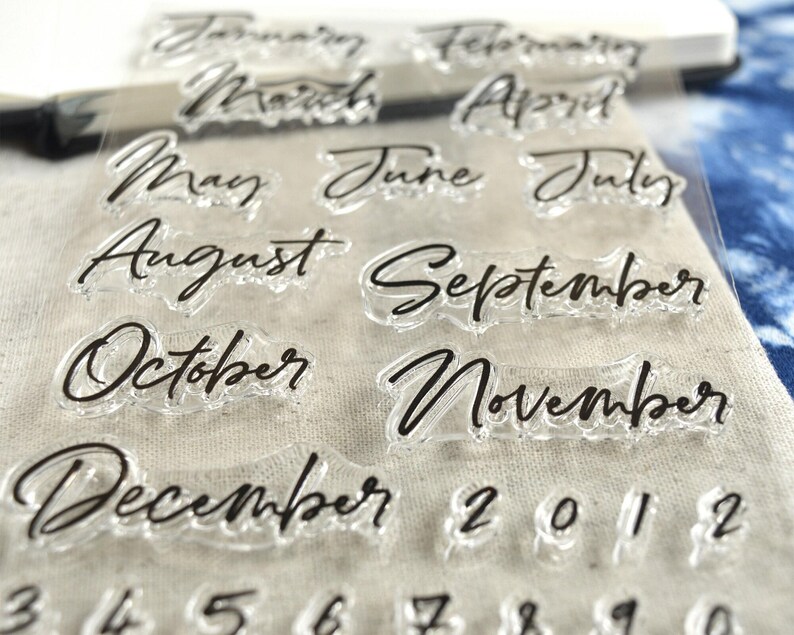 January February
March April
May June July
August September
October November
December 2 0 1 2
3 4 5 6 7 8 9 0